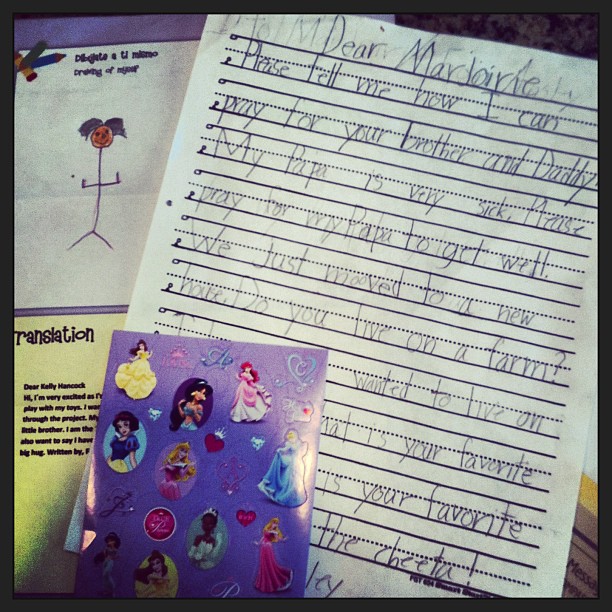 Dibújate a ti mismo
Drawing of myself
ranslation
Dear Kelly Hancock
Hi, I'm very excited as I'
play with my toys. I wa
through the project. My
little brother. I am the
also want to say I have
big hug. Written by,
Dear
Please tell me how I can
pray for your brother and Daddy!
My Papa is very sick. Please
pray for my Papa to get well.
We just moved to a new
house. Do you live on a farm?
wanted to live on
hat is your favorite
is your favorite
the cheeta!
ley